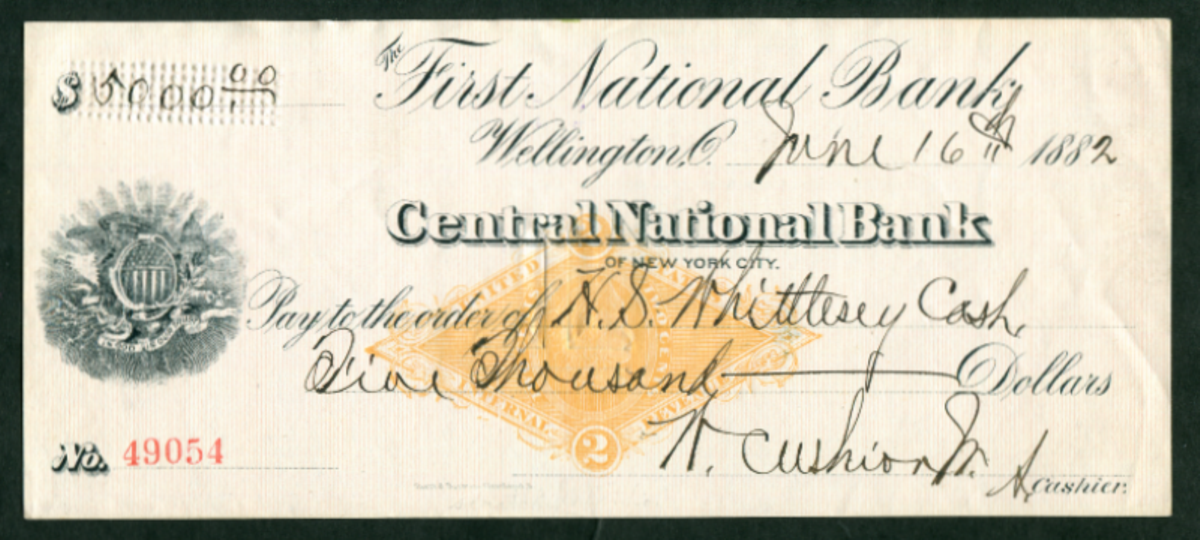 $ 5000.00
The First National Bank
Wellington, O. June 16th 1882
Central National Bank
OF NEW YORK CITY.
Pay to the order of H. S. Whittlesey Cash.
Five Thousand Dollars
UNITED STATES
INTERNAL REVENUE
2
No. 49054
W. Cushion Jr. A. Cashier.